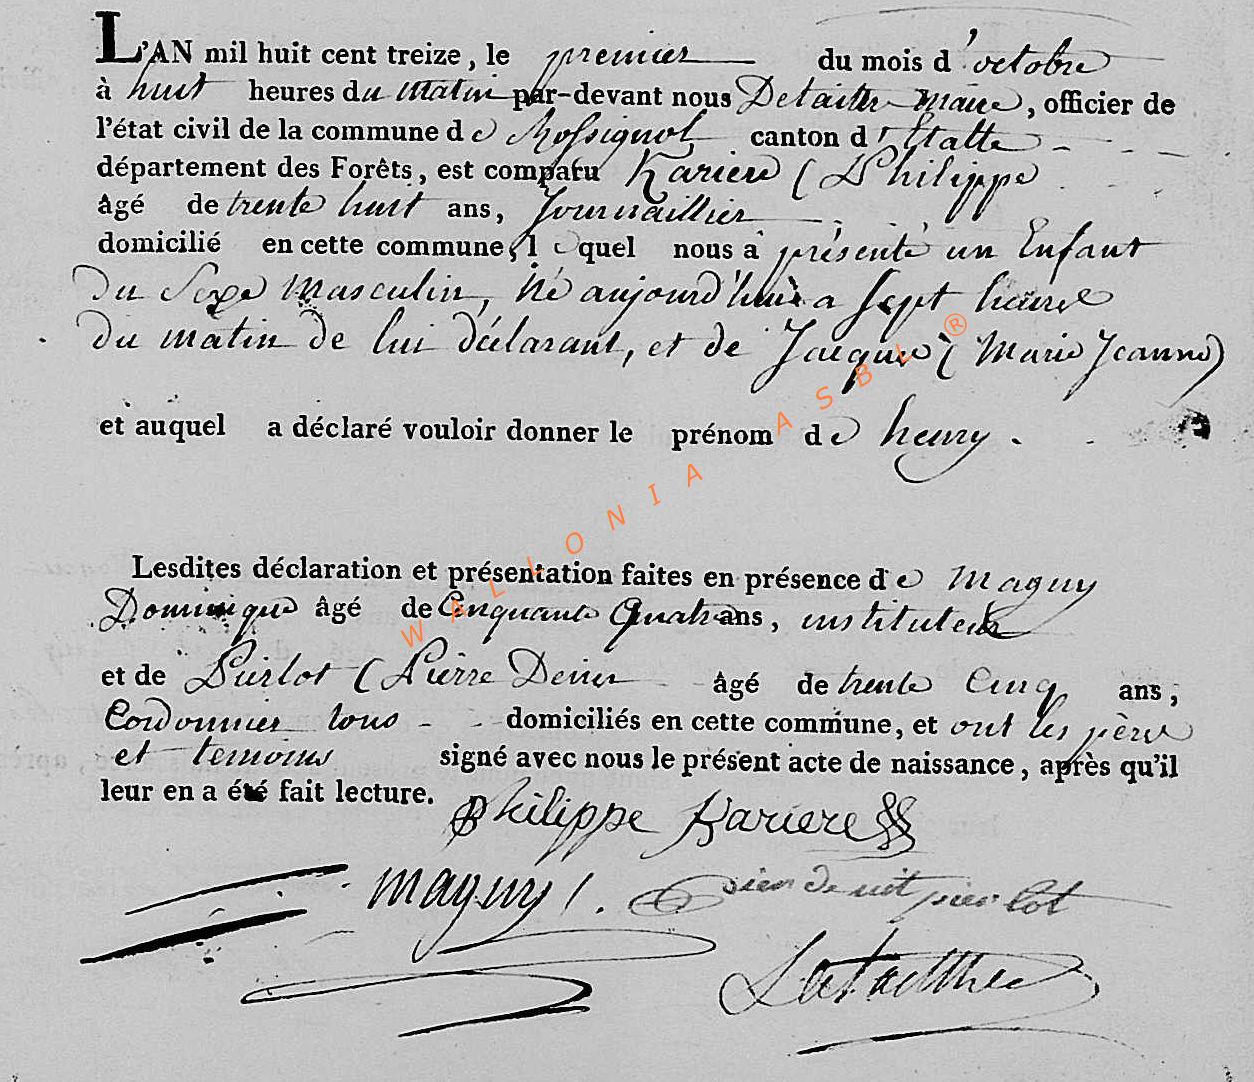 L'AN mil huit cent treize, le premier du mois d'octobre
à huit heures du matin par-devant nous Detaille maire, officier de
l'état civil de la commune de Rossignol canton d'Etalle
département des Forêts, est comparu Kariere (Philippe
âgé de trente huit ans, Journaillier
domicilié en cette commune, lequel nous a présenté un Enfant
du Sexe Masculin, né aujourd'huis a sept heures
du matin de lui déclarant, et de Jacques (Marie Jeanne)
et auquel a déclaré vouloir donner le prénom de henry.
Lesdites déclaration et présentation faites en présence de Maguy
Dominique âgé de Cinquante Quatre ans, instituteur
et de Pierlot (Pierre Denis âgé de trente Cinq ans,
Cordonnier tous domiciliés en cette commune, et ont les père
et temoins signé avec nous le présent acte de naissance, après qu'il
leur en a été fait lecture.
Philippe Kariere
Maguy
pierlot
WALLONIA ASBL ®